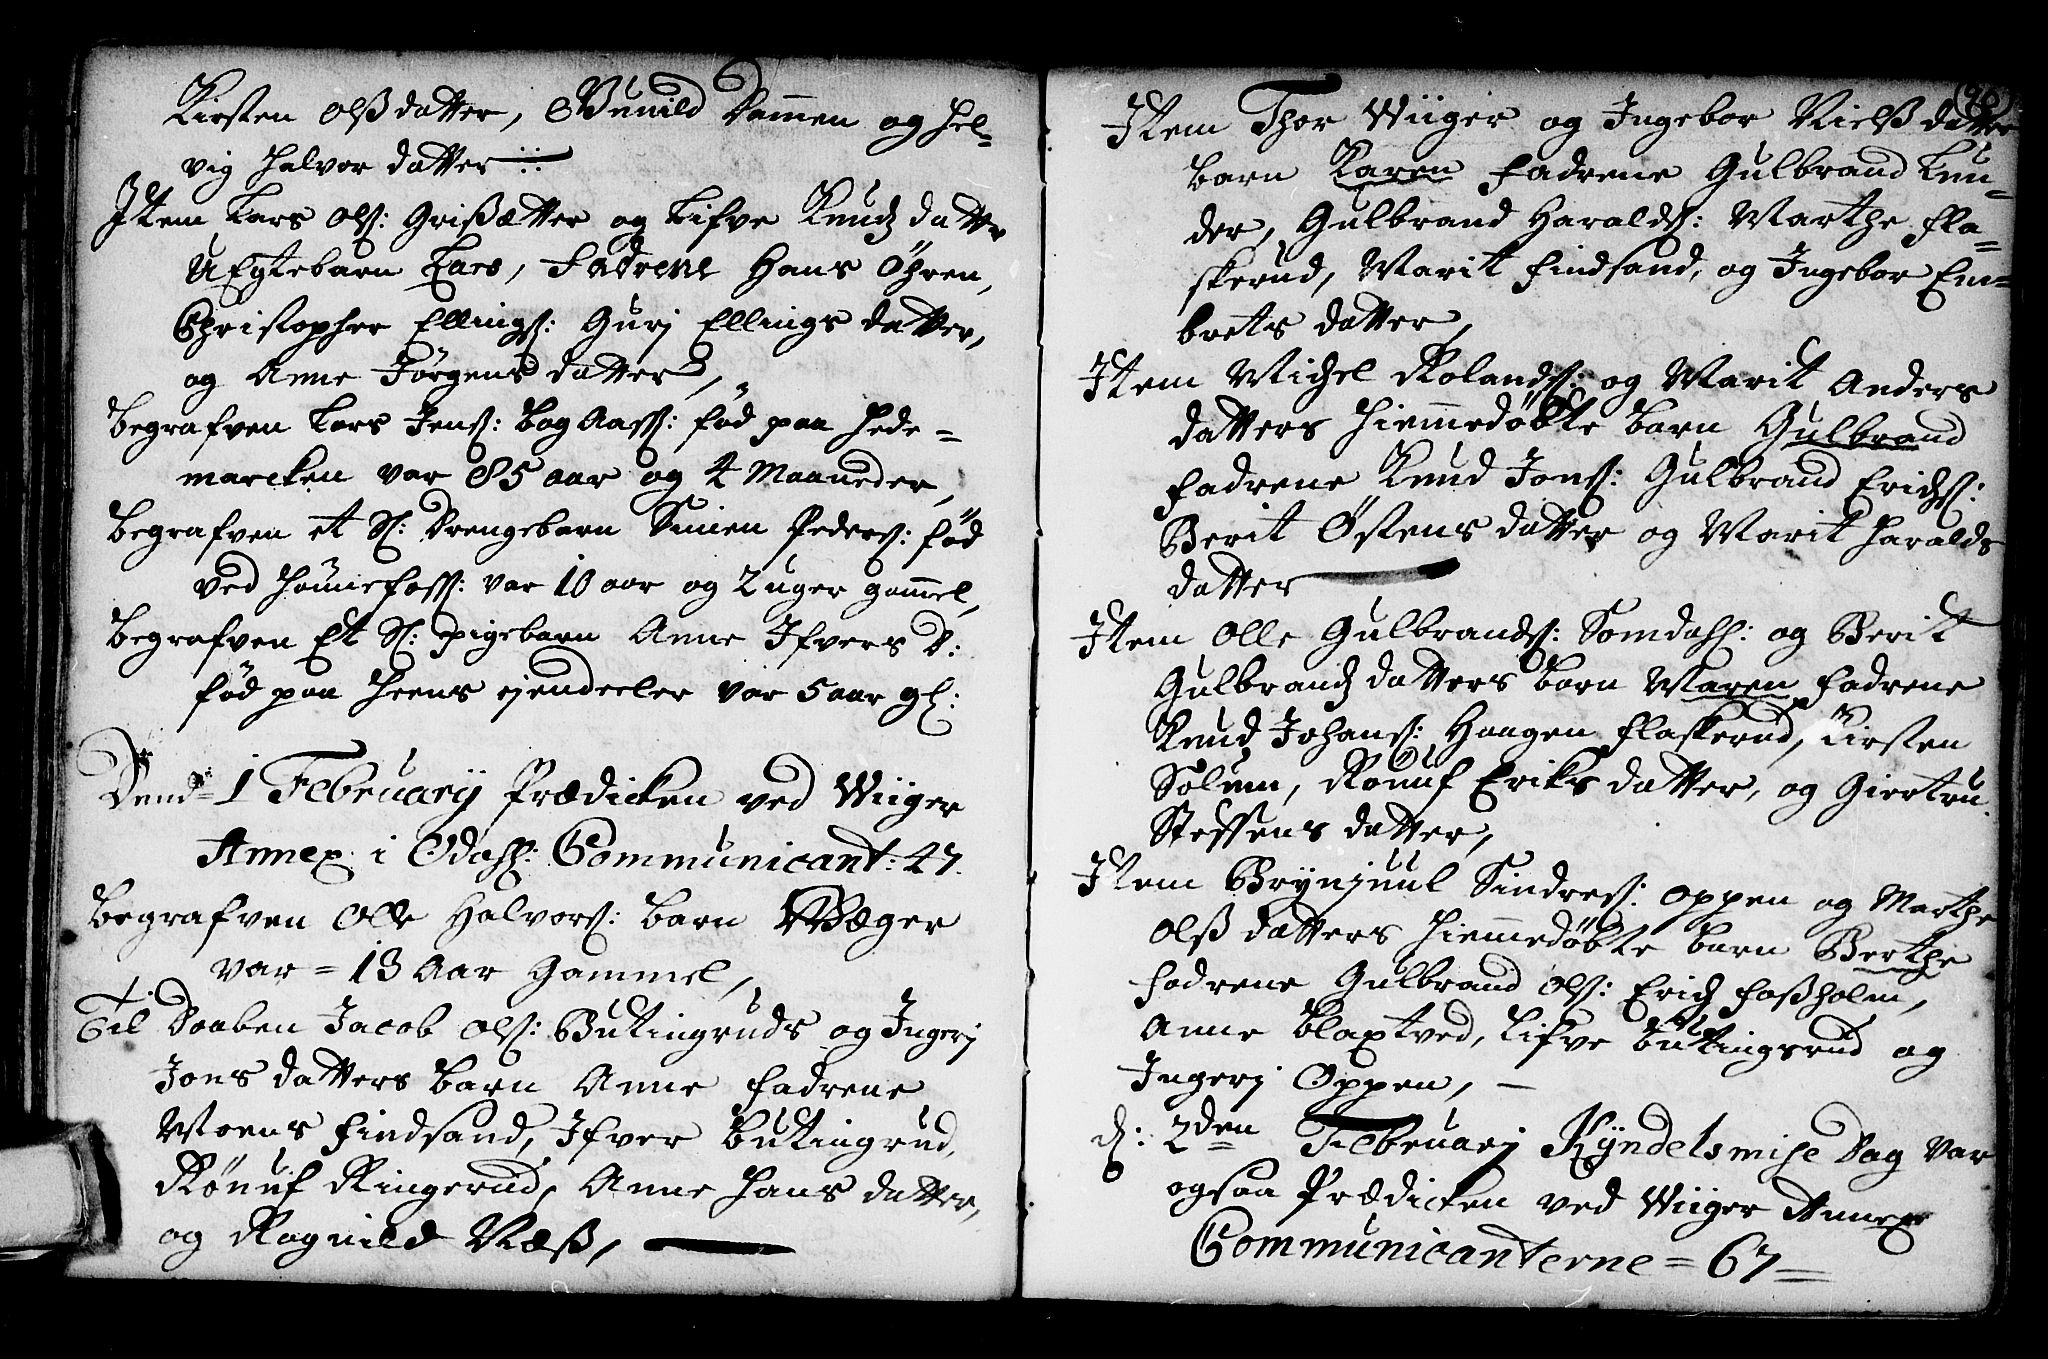 Kirsten Olsdatter, Gunild Dammen og Hel-
vig Halvor datter
Item Lars Ols: Grisætter og Lisve Knuds datter
UEgtebarn Lars, Fadrene Hans Öhren,
Christopher Ellings: Gurj Ellings datter,
og Anne Jörgens datter,
Begrafven Lars Jens: Bog Aass: fød paa Hede-
marcken var 85 aar og 4 Maaneder,
Begrafven et Sl: Drengebarn Simen Peders: fød
ved Hönefoss: var 10 aar og 2 uger gammel,
Begrafven Et Sl: pigebarn Anne Ifvers D:
fød paa Heens ejendeeler var 5 aar gl:
Dend 1 Februarij Prædicken ved Wiiger
Annex i Odahl: Communicant: 47.
Begrafven Olle Halvors: barn Wæger
var = 13 Aar Gammel,
Til Daaben Jacob Ols: Butingruds og Ingerj
Jons datters barn Anne fadrene
Moens Findsand, Ifver Butingrud,
Rönuf Ringerud, Anne Hans datter,
og Ragnild Næss,
(96)
Item Thor Wiiger og Ingebor Nielsdatter
barn Karen Fadrene Gulbrand Lun-
der, Gulbrand Haralds: Marthe Fla-
skerud, Marit Findsand, og Ingebor Em-
brets datter,
Item Michel Rolands: og Marit Anders
datters Hiemmedøbte barn Gulbrand
Fadrene Knud Jons: Gulbrand Erichs:
Berit Østens datter og Marit Haralds
datter
Item Olle Gulbrands: Somdahl: og Berit
Gulbrands datters barn Maren, Fadrene
Knud Johans: Haagen Flaskerud, Kirsten
Solum, Rönuf Eriks datter, og Giertru
Steffens datter,
Item Brynjuul Sindres: Oppen og Marthe
Olsdatters Hiemmedøbte barn Berthe
Fadrene Gulbrand Ols: Erich Fossholm,
Anne Blaxtved, Lifve Butingsrud og
Ingerj Oppen,
d: 2den Februarj Kyndelsmise Dag Var
ogsaa Prædicken ved Wiiger Annex
Communicanterne = 67